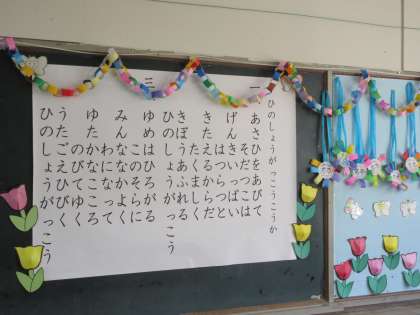 ひのしょうがっこうこうか
一 あさひをあびて
げんきいっぱい
はつらつと
きたえるからだ
きぼうあふれる
ひのしょうがっこう
三
みんななかよく
わになって
ゆたかなこころ
のびてゆく
うたごえひびく
ひのしょうがっこう